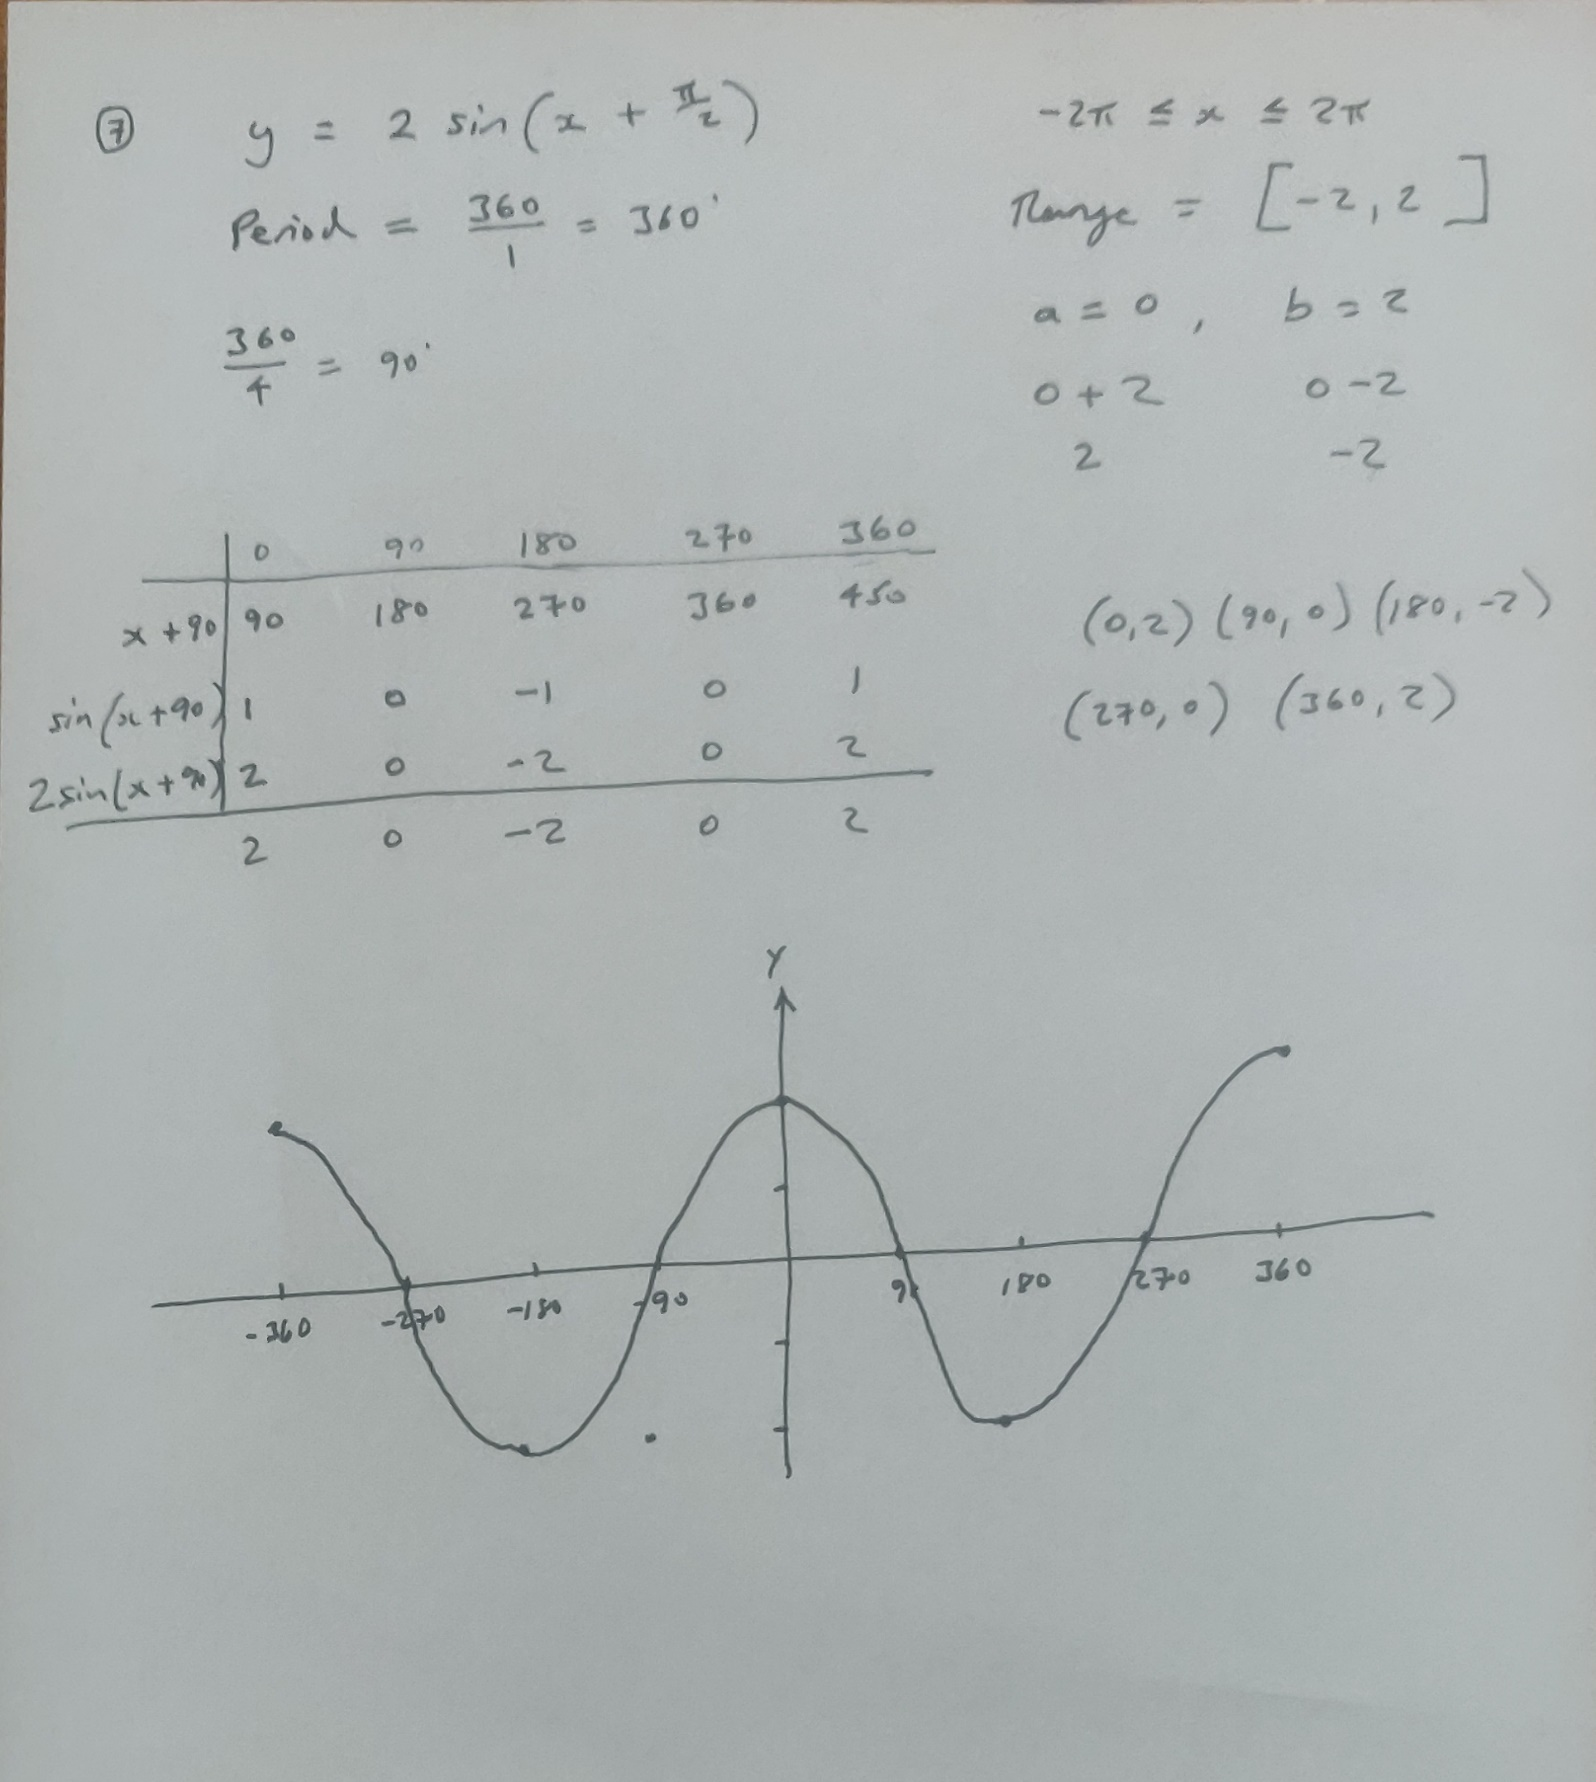 ⑦ y = 2 sin(x + π/2) -2π ≤ x ≤ 2π
Period = 360/1 = 360° Range = [-2, 2]
360/4 = 90° a = 0, b = 2
0 + 2 0 - 2
2 -2
0 90 180 270 360
x + 90 90 180 270 360 450
sin(x + 90) 1 0 -1 0 1
2 sin(x + 90) 2 0 -2 0 2
2 0 -2 0 2
(0, 2) (90, 0) (180, -2)
(270, 0) (360, 2)
Y
-360 -270 -180 -90 90 180 270 360